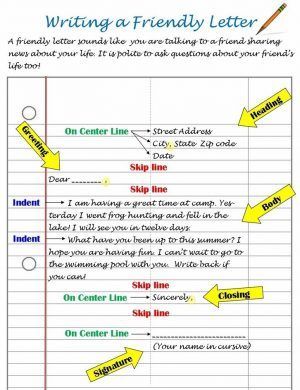 Writing a Friendly Letter
A friendly letter sounds like you are talking to a friend sharing
news about your life. It is polite to ask questions about your friend's
life too!
Heading
On Center Line Street Address
City, State Zip code
Date
Greeting
Skip line
Dear ________,
Skip line
Indent I am having a great time at camp. Yes-
terday I went frog hunting and fell in the
lake! I will see you in twelve days.
Body
Indent What have you been up to this summer? I
hope you are having fun. I can't wait to go to
the swimming pool with you. Write back if
you can!
Skip line
On Center Line Sincerely,
Closing
Skip line
On Center Line ____________
(Your name in cursive)
Signature